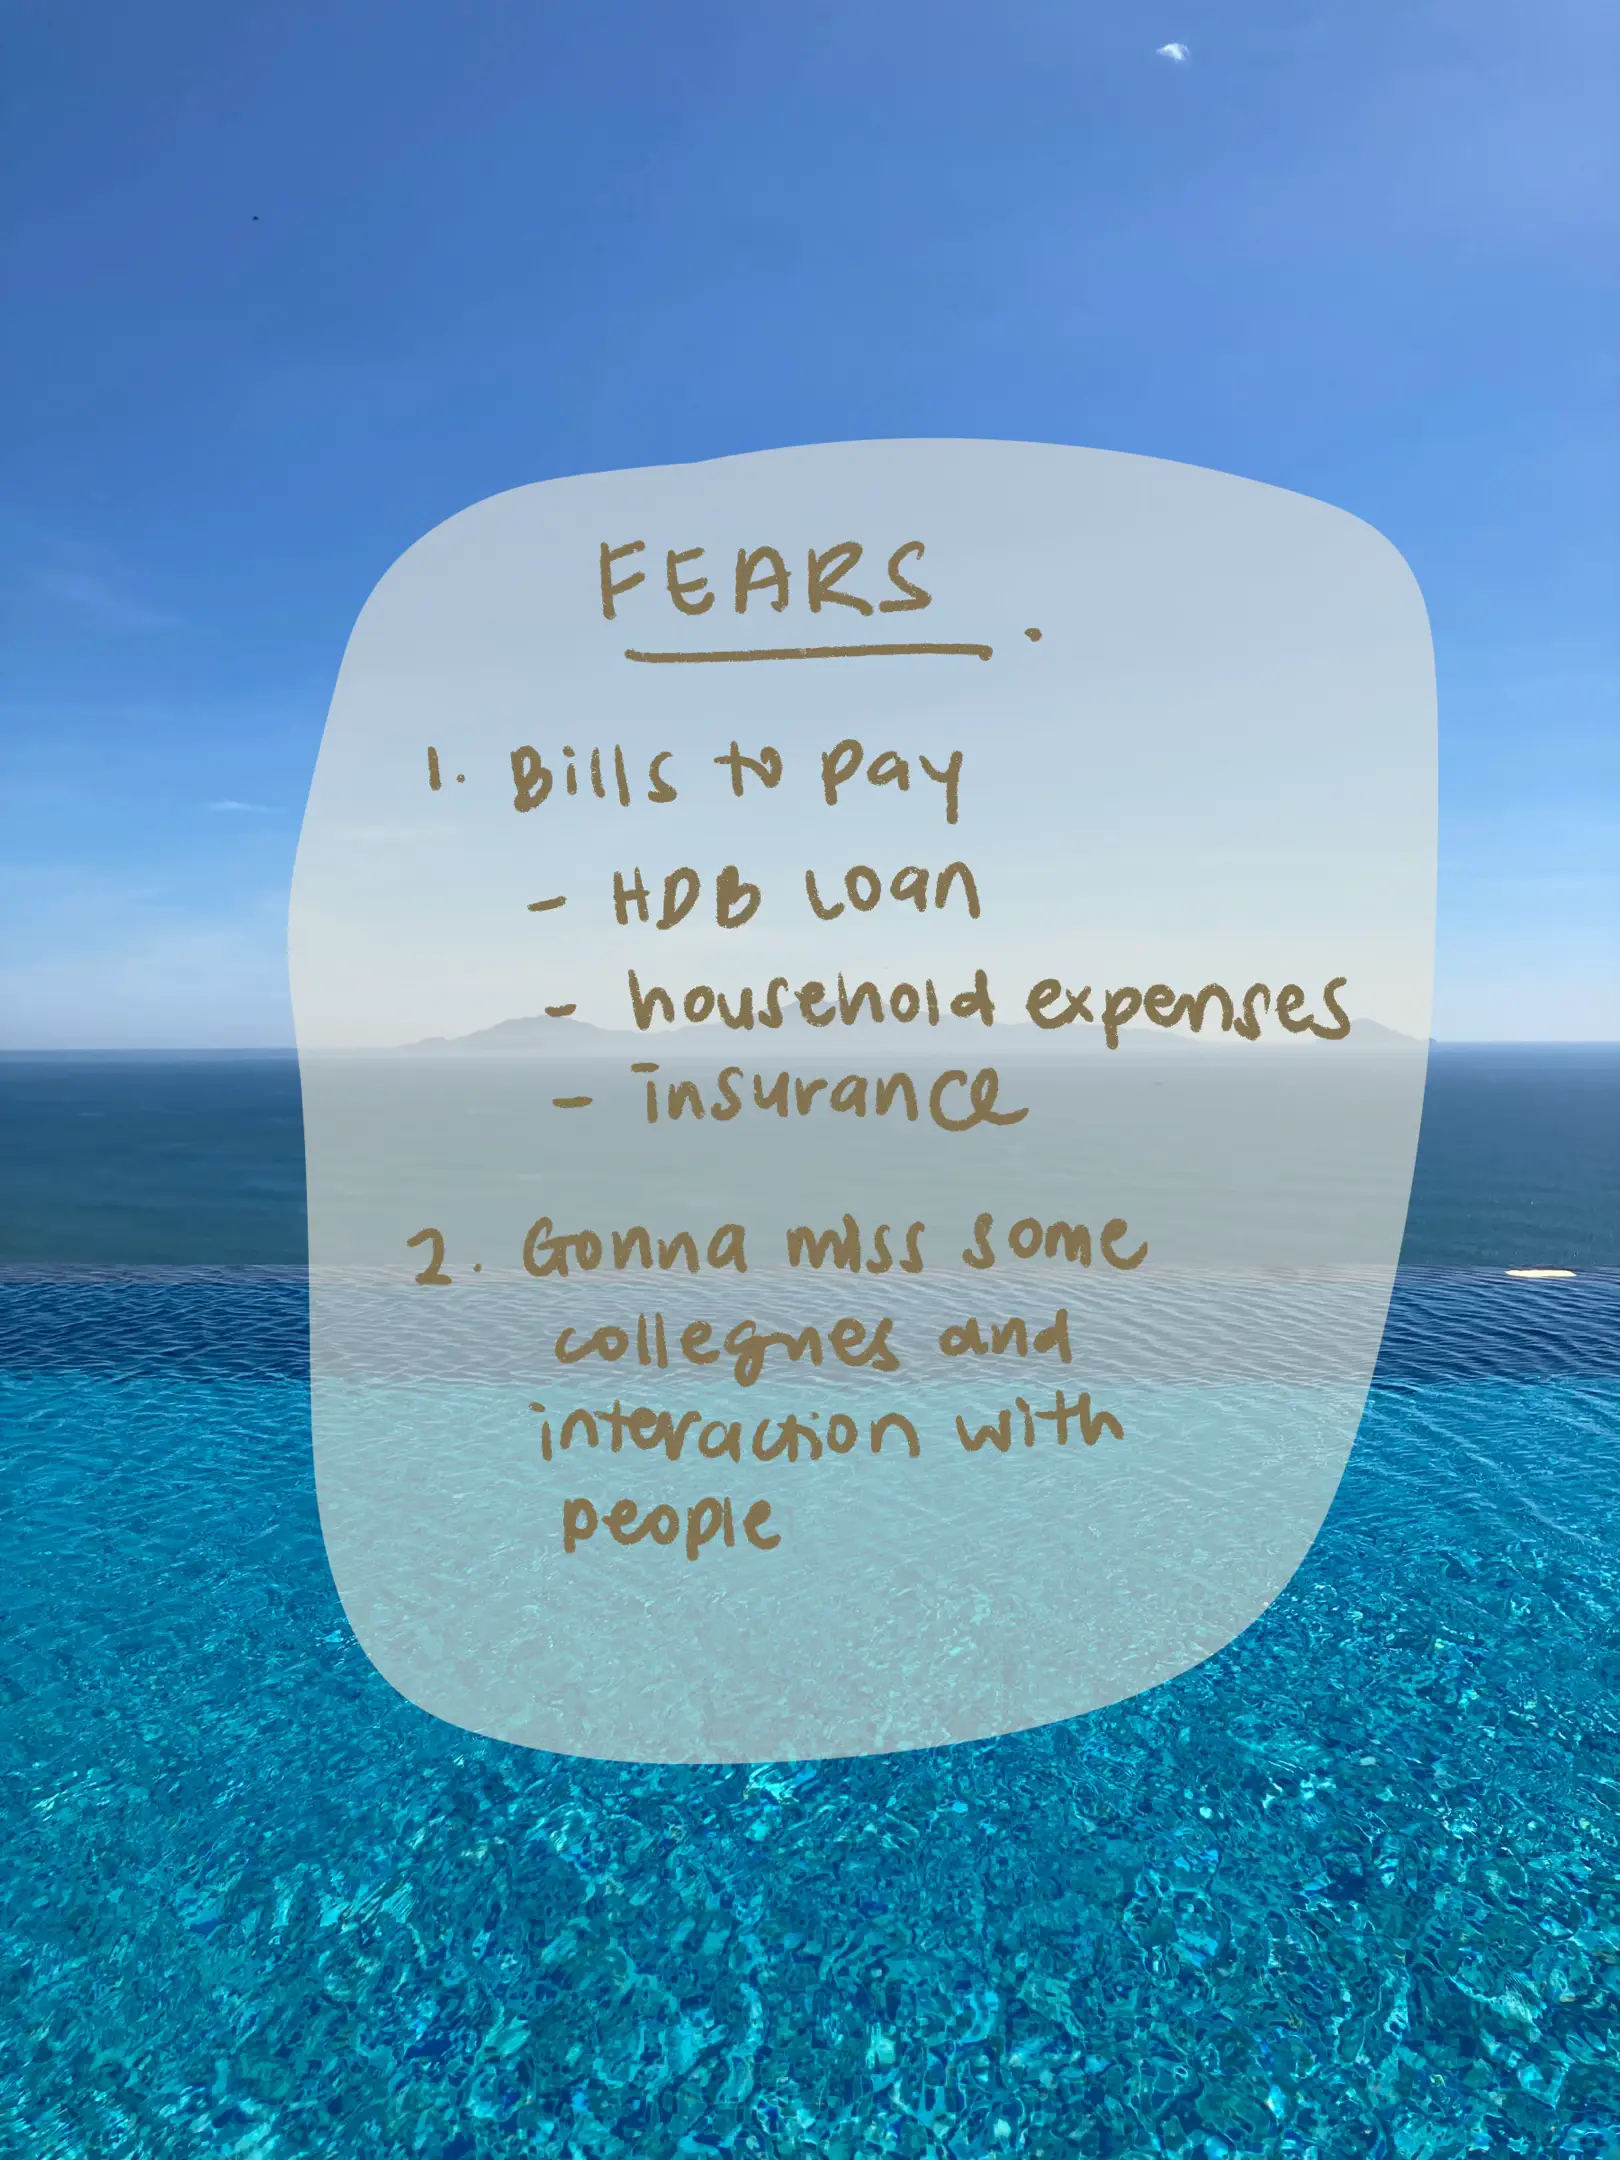 FEARS.
1. Bills to pay
- HDB Loan
- household expenses
- insurance
2. Gonna miss some
collegues and
interaction with
people